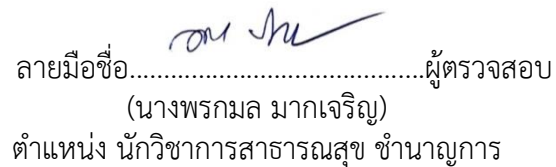 ลายมือชื่อ............................................ผู้ตรวจสอบ
(นางพรกมล มากเจริญ)
ตำแหน่ง นักวิชาการสาธารณสุข ชำนาญการ